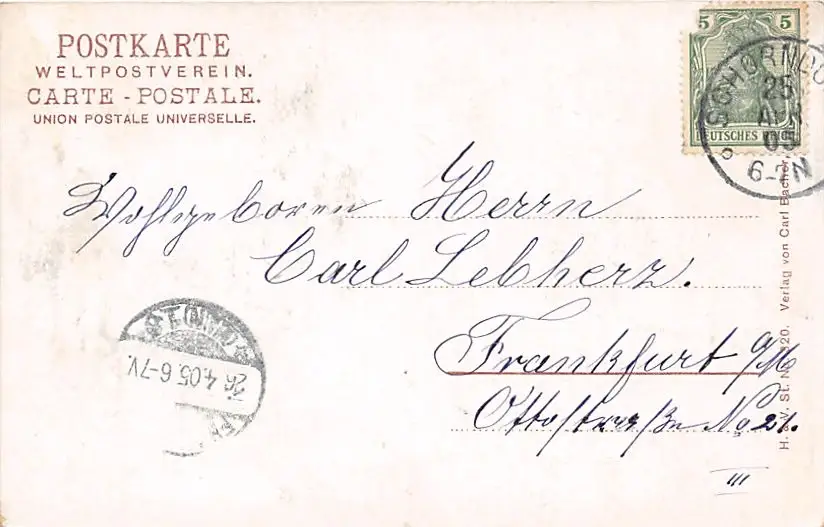 POSTKARTE
WELTPOSTVEREIN.
CARTE - POSTALE.
UNION POSTALE UNIVERSELLE.
5 5
DEUTSCHES REICH
SCHORNDO
25
APR
05
6-7N
Wohlgeboren Herrn
Carl Lebherz.
Frankfurt a/M
Ottostraße No 21.
III
26.4.05.6-7V.
Verlag von Carl Bacher,